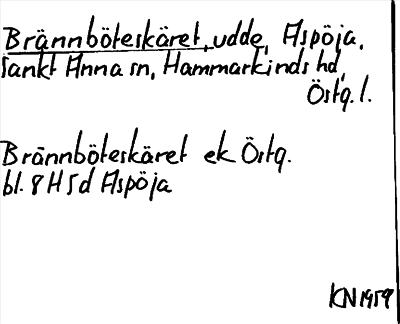 Brännböteskäret, udde, Aspöja,
Sankt Anna sn, Hammarkinds hd,
Östg. l.
Brännböteskäret ek Östg.
bl. 8 H 5d Aspöja
KN 1959